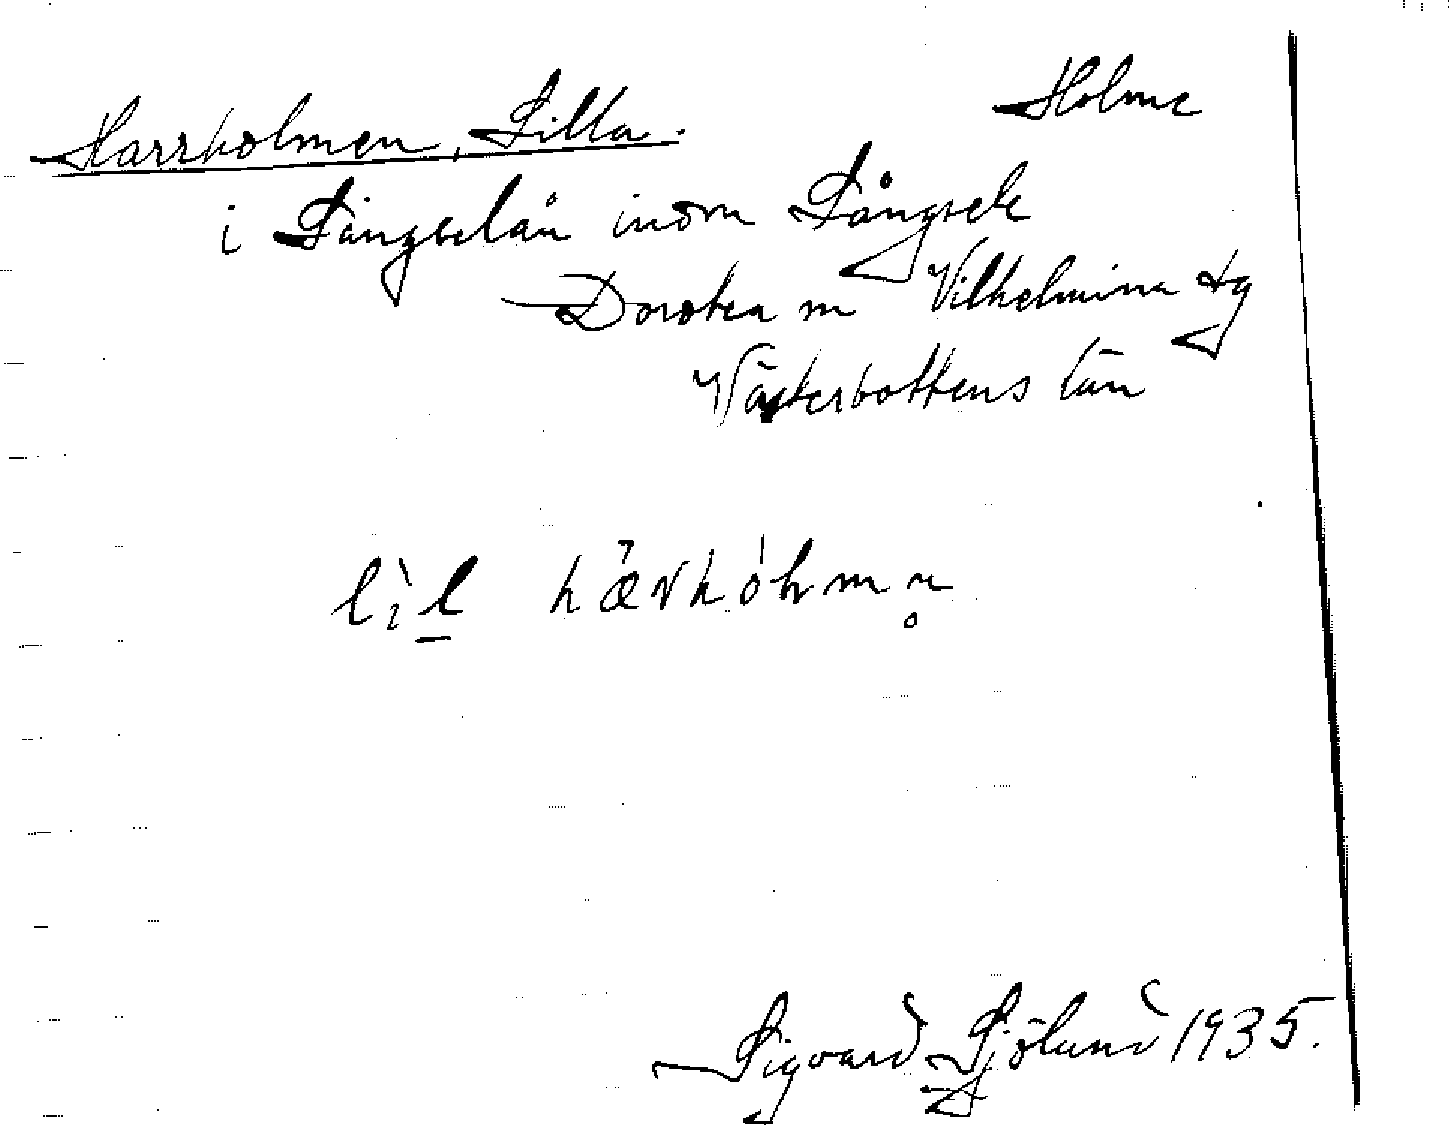 Harrholmen, Lilla.
Holme
i Långselån inom Långsele
Dorotea sn Vilhelmina tg
Västerbottens län
Sigvard Sjölund 1935.